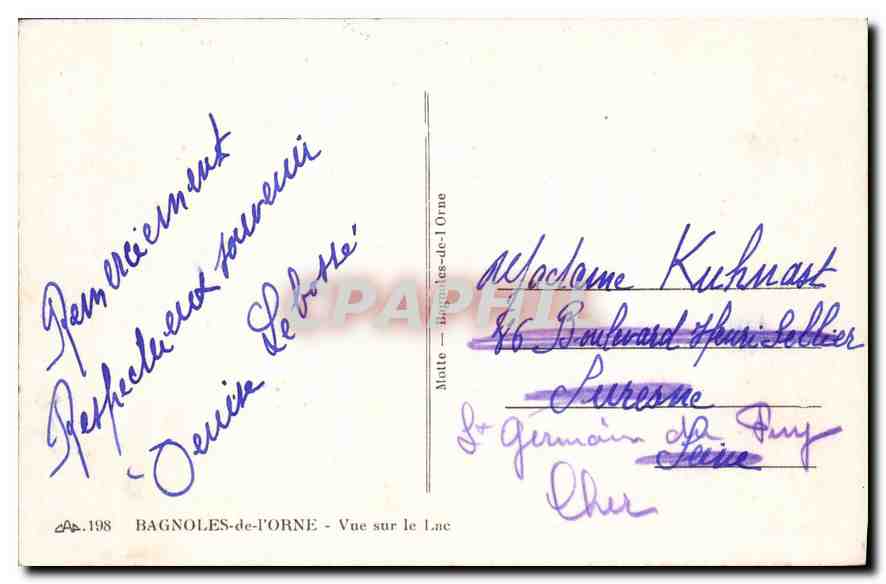 Remerciement
Respectueux souvenir
Denise Lebossé
CPAPHIL
Motte — Bagnoles-de-l'Orne
Madame Kuhnast
86 Boulevard Henri Sellier
Suresne
St Germain du Puy
Seine
Cher
CAP.198 BAGNOLES-de-l'ORNE - Vue sur le Lac